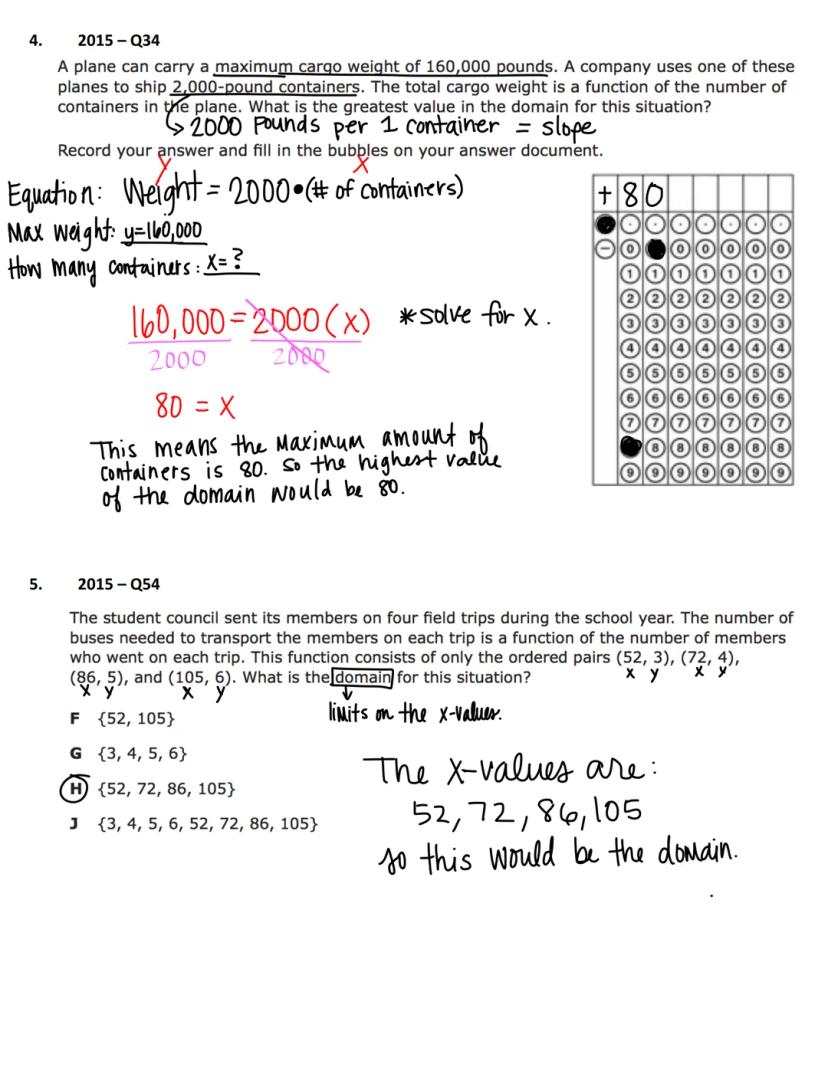 4. 2015 – Q34
A plane can carry a maximum cargo weight of 160,000 pounds. A company uses one of these
planes to ship 2,000-pound containers. The total cargo weight is a function of the number of
containers in the plane. What is the greatest value in the domain for this situation?
↳ 2000 Pounds per 1 container = slope
Record your answer and fill in the bubbles on your answer document.
y x
Equation: Weight = 2000•(# of containers)
Max Weight: y=160,000
How many containers: x=?
160,000 = 2000(x) *solve for x.
2000 2000
80 = x
This means the Maximum amount of
containers is 80. So the highest value
of the domain would be 80.
+ 8 0
. . . . . . .
− 0 0 0 0 0 0
1 1 1 1 1 1 1
2 2 2 2 2 2 2
3 3 3 3 3 3 3
4 4 4 4 4 4 4
5 5 5 5 5 5 5
6 6 6 6 6 6 6
7 7 7 7 7 7 7
8 8 8 8 8 8
9 9 9 9 9 9 9
5. 2015 – Q54
The student council sent its members on four field trips during the school year. The number of
buses needed to transport the members on each trip is a function of the number of members
who went on each trip. This function consists of only the ordered pairs (52, 3), (72, 4),
x y x y
(86, 5), and (105, 6). What is the domain for this situation?
x y x y
limits on the x-values.
F {52, 105}
G {3, 4, 5, 6}
H {52, 72, 86, 105}
J {3, 4, 5, 6, 52, 72, 86, 105}
The x-values are:
52, 72, 86, 105
so this would be the domain.